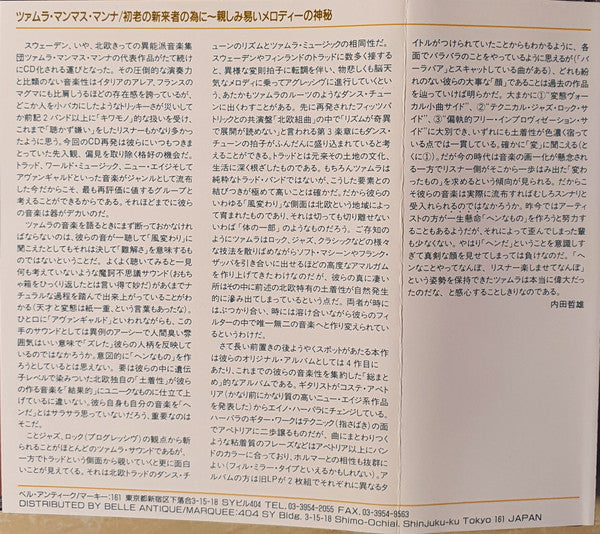 ツァムラ・マンマス・マンナ/初老の新来者の為に〜親しみ易いメロディーの神秘
スウェーデン、いや、北欧きっての異能派音楽集
団ツァムラ・マンマス・マンナの代表作品がたて続け
にCD化される運びとなった。その圧倒的な演奏力
と比類のない音楽性はイタリアのアレア、フランスの
マグマにも比肩しうるほどの存在感を誇っているが、
どこか人を小バカにしたようなトリッキーさが災いして
か前記2バンド以上に「キワモノ」的な扱いを受け、
これまで「聴かず嫌い」をしたリスナーもかなり多かっ
たように思う。今回のCD再発は彼らにいつもつきま
とっていた先入観、偏見を取り除く格好の機会だ。
トラッド、ワールド・ミュージック、ニュー・エイジそして
アヴァンギャルドといった音楽がジャンルとして流布
した今だからこそ、最も再評価に値するグループと
考えることができるからである。それほどまでに彼ら
の音楽は器がデカいのだ。
ツァムラの音楽を語るときにまず断っておかなけれ
ばならないのは、彼らの音が一聴して「風変わり」に
聞こえたとしてもそれは決して「難解さ」を意味する
のではないということだ。よくよく聴いてみると一見
何も考えていないような魔訶不思議サウンド(おもち
ゃ箱をひっくり返したとは言い得て妙だ)があくまで
ナチュラルな過程を踏んで出来上がっていることがわ
かる(天才と変態は紙一重、という言葉もあったな)。
ひと口に「アヴァンギャルド」といわれながらも、この
手のサウンドしては異例のアーシーで人間臭い雰
囲気はいい意味で“ズレた”彼らの人柄を反映し
ているのではなかろうか。意図的に「ヘンなもの」を作
ろうとしているとは思えない。要は彼らの中に遺伝
子レベルで染みついた北欧独自の「土着性」が彼ら
の作る音楽を「結果的」にユニークなものに仕立て上
げているに違いない。彼ら自身も自分の音楽を“ヘ
ンだ”とはサラサラ思っていないだろう、重要なのは
そこだ。
ことジャズ、ロック(プログレッシヴ)の観点から斬
られることがほとんどのツァムラ・サウンドであるが、
一方でトラッドという側面から覗いていくと更に面白
いことが見えてくる。それは北欧トラッドのダンス・チ
ューンのリズムとツァムラ・ミュージックの相同性だ。
スウェーデンやフィンランドのトラッドに数多く接する
と、異様な変則拍子に転調を伴い、物悲しくも脳天
気なメロディに乗ってアグレッシヴに進行していくとい
う、あたかもツァムラのルーツのようなダンス・チュー
ンに出くわすことがある。先に再発されたフィッツパ
トリックとの共演盤「北欧組曲」の中で「リズムが奇異
で展開が読めない」と言われる第3楽章にもダンス・
チューンの拍子がふんだんに盛り込まれていると考え
ることができる。トラッドとは元来その土地の文化、
生活に深く根ざしたものである。もちろんツァムラは
純粋なトラッド・バンドではないが、こうした要素との
結びつきが極めて高いことは確かだ。だから彼らの
いわゆる「風変わり」な側面は北欧という地域によっ
て育まれたものであり、それは切っても切り離せない
いわば「体の一部」のようなものだろう。ご存知のよ
うにツァムラはロック、ジャズ、クラシックなどの様々
な技法を散りばめながらソフト・マシーンやフランク・
ザッパを引き合いに出せるほどの高度なアマルガム
を作り上げてきたわけなのだが、彼らの真に凄い
所はその中に前述の北欧特有の土着性が自然発生
的に滲み出してしまっているという点だ。両者が時に
はぶつかり合い、時には溶け合いながら彼らのフィ
ルターの中で唯一無二の音楽へと作り変えられてい
るというわけだ。
さて長い前置きの後ようやくスポットがあたる本作
は彼らのオリジナル・アルバムとしては4作目に
あたり、これまでの彼らの音楽性を集約した「総まと
め」的なアルバムである。ギタリストがコステ・アペト
リア(かなり前にかなり質の高いニュー・エイジ系作品
を発表した)からエイノ・ハーパラにチェンジしている。
ハーパラのギター・ワークはテクニック(指さばき)の面
でアペトリアに二歩譲るものだが、曲にまとわりつく
ような粘着質のフレーズなどはアペトリア以上にバン
ドのカラーに合っており、ホルマーとの相性も抜群によ
い(フィル・ミラー・タイプといえるかもしれない)。アル
バムの方は旧LPが2枚組でそれぞれに異なるタ
イトルがつけられていたことからもわかるように、各
面でバラバラのことをやっているように思えるが(「バ
ーラバア」とスキャットしている曲がある)、どれも紛
れのない彼らの大事な「顔」であることは過去の作品
を辿っていけば明らかだ。大まかに①“変態ヴォー
カル小曲サイド”、②“テクニカル・ジャズ・ロック・サイ
ド”、③“偏執的フリー・インプロヴィゼーション・サイ
ド”に大別でき、いずれにも土着性が色濃く宿ってい
る点では一貫している。確かに「変」に聞こえる(と
くに①)。だが今の時代は音楽の画一化が懸念され
る一方でリスナー側がそこから一歩はみ出た「変わ
ったもの」を求めるという傾向が見られる。だからこ
そ彼らの音楽は実際に流布すればむしろスンナリと
受け入れられるのではなかろうか。昨今ではアーティ
ストの方が一生懸命「ヘンなもの」を作ろうと努力す
ることもあるようだが、それによって歪んでしまった輩
も少なくない。やはり「ヘン」ということを意識しす
ぎて真剣な顔を見せてしまっては負けなのだ。「ヘ
ンなことやってなんぼ、リスナー楽しませてなんぼ」
という姿勢を保持できたツァムラは本当に偉大だっ
たのだな、と感心することしきりなのである。
内田哲雄
ベル・アンティーク/マーキー:161 東京都新宿区下落合3-15-18 SYビル404 TEL. 03-3954-2055 FAX. 03-3954-9563
DISTRIBUTED BY BELLE ANTIQUE/MARQUEE:404 SY Bldg. 3-15-18 Shimo-Ochiai. Shinjuku-ku Tokyo 161 JAPAN